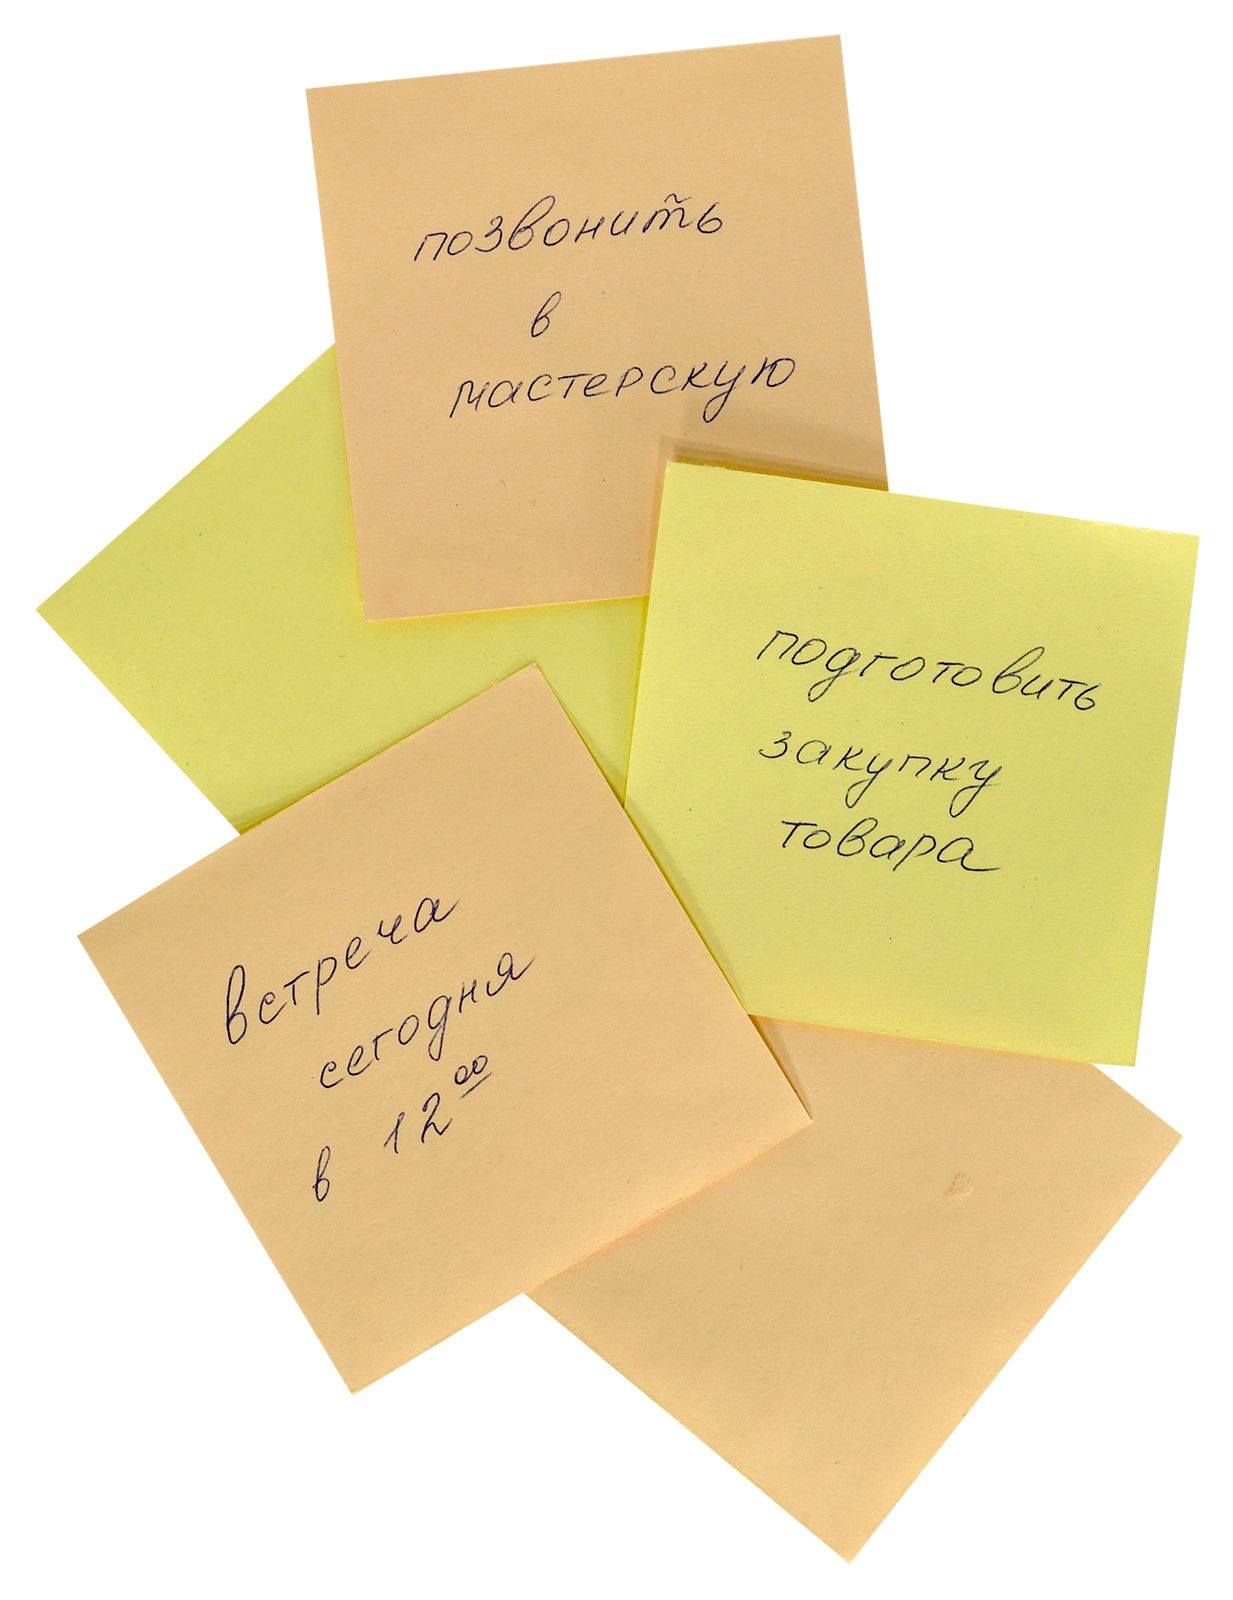 позвонить
в
мастерскую
подготовить
закупку
товара
встреча
сегодня
в 12 00